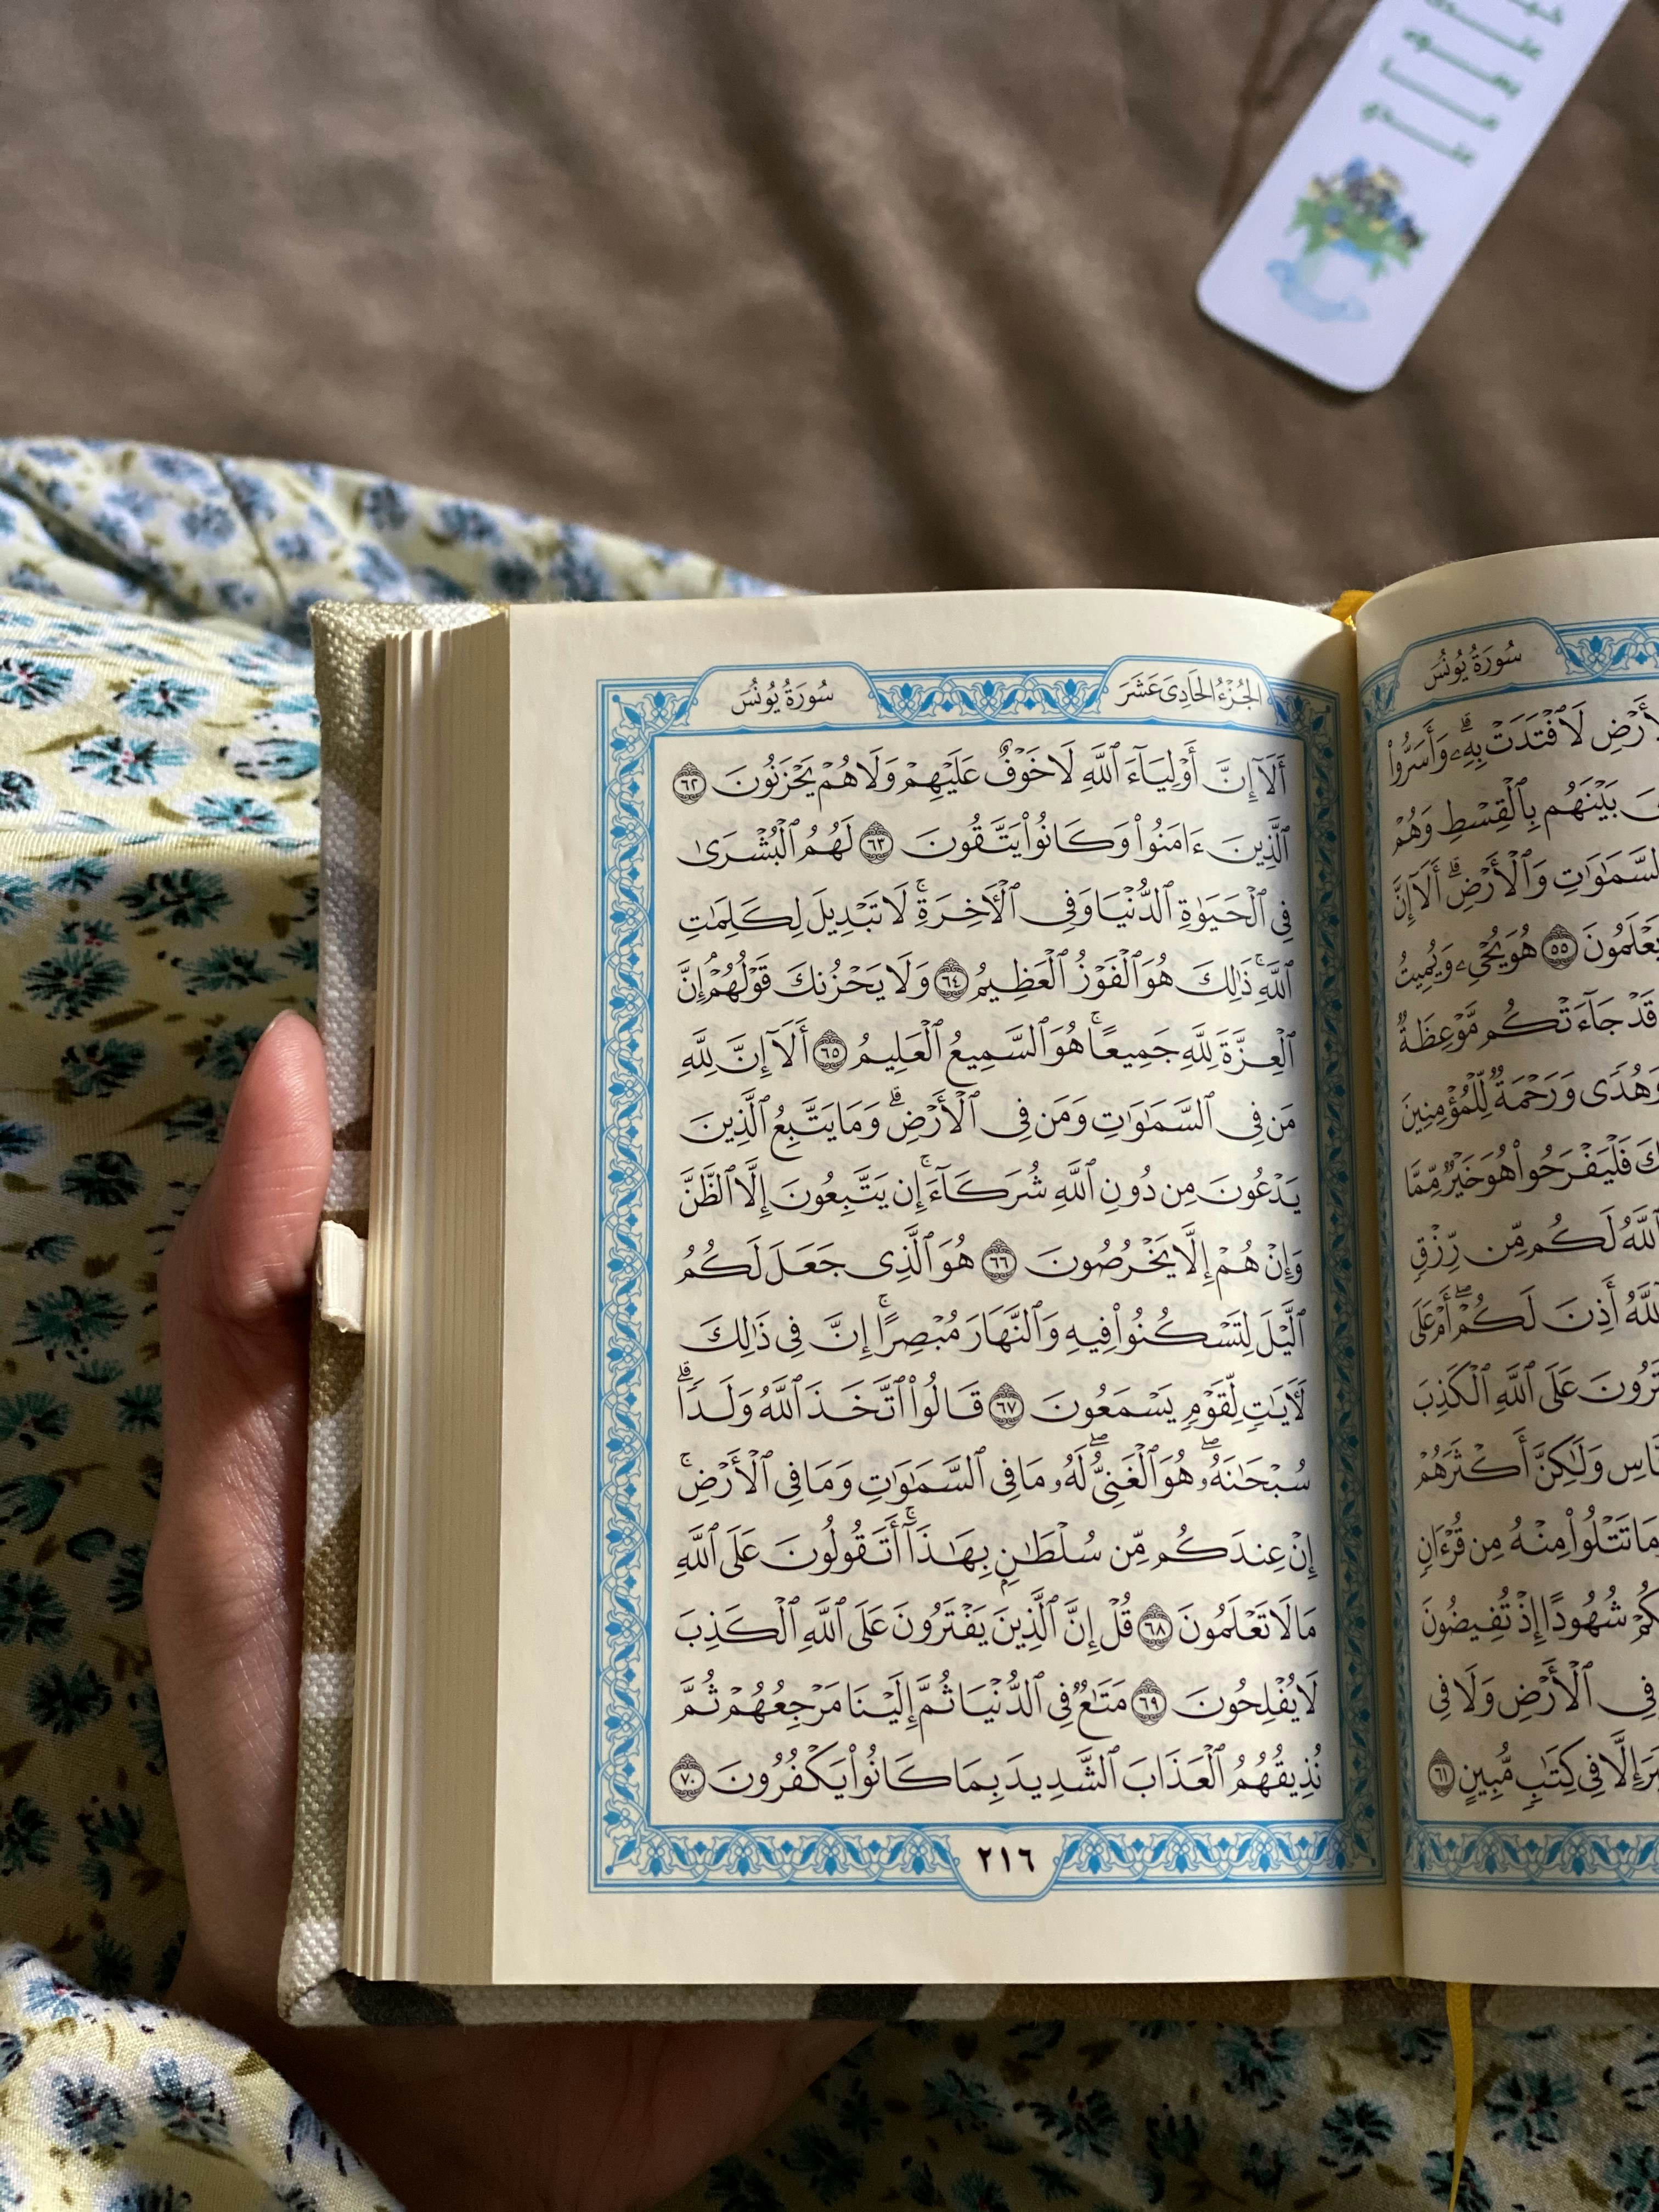 سُورَةُ يُونُسَ
لَافْتَدَتْ بِهِۦۗ وَأَسَرُّوا۟
بَيْنَهُم بِٱلْقِسْطِ وَهُمْ
ٱلسَّمَٰوَٰتِ وَٱلْأَرْضِۗ أَلَآ إِنَّ
يَعْلَمُونَ ٥٥ هُوَ يُحْىِۦ وَيُمِيتُ
قَدْ جَآءَتْكُم مَّوْعِظَةٌ
وَهُدًى وَرَحْمَةٌ لِّلْمُؤْمِنِينَ
فَلْيَفْرَحُوا۟ هُوَ خَيْرٌ مِّمَّا
ٱللَّهُ لَكُم مِّن رِّزْقٍ
ءَآللَّهُ أَذِنَ لَكُمْۖ أَمْ عَلَى
عَلَى ٱللَّهِ ٱلْكَذِبَ
وَلَٰكِنَّ أَكْثَرَهُمْ
وَمَا تَتْلُوا۟ مِنْهُ مِن قُرْءَانٍ
شُهُودًا إِذْ تُفِيضُونَ
فِى ٱلْأَرْضِ وَلَا فِى
إِلَّا فِى كِتَٰبٍ مُّبِينٍ ٦١
الجُزْءُ الحَادِى عَشَرَ
سُورَةُ يُونُسَ
أَلَآ إِنَّ أَوْلِيَآءَ ٱللَّهِ لَا خَوْفٌ عَلَيْهِمْ وَلَا هُمْ يَحْزَنُونَ ٦٢
ٱلَّذِينَ ءَامَنُوا۟ وَكَانُوا۟ يَتَّقُونَ ٦٣ لَهُمُ ٱلْبُشْرَىٰ
فِى ٱلْحَيَوٰةِ ٱلدُّنْيَا وَفِى ٱلْأَخِرَةِۚ لَا تَبْدِيلَ لِكَلِمَٰتِ
ٱللَّهِۚ ذَٰلِكَ هُوَ ٱلْفَوْزُ ٱلْعَظِيمُ ٦٤ وَلَا يَحْزُنكَ قَوْلُهُمْۘ إِنَّ
ٱلْعِزَّةَ لِلَّهِ جَمِيعًاۚ هُوَ ٱلسَّمِيعُ ٱلْعَلِيمُ ٦٥ أَلَآ إِنَّ لِلَّهِ
مَن فِى ٱلسَّمَٰوَٰتِ وَمَن فِى ٱلْأَرْضِۗ وَمَا يَتَّبِعُ ٱلَّذِينَ
يَدْعُونَ مِن دُونِ ٱللَّهِ شُرَكَآءَۚ إِن يَتَّبِعُونَ إِلَّا ٱلظَّنَّ
وَإِنْ هُمْ إِلَّا يَخْرُصُونَ ٦٦ هُوَ ٱلَّذِى جَعَلَ لَكُمُ
ٱلَّيْلَ لِتَسْكُنُوا۟ فِيهِ وَٱلنَّهَارَ مُبْصِرًاۚ إِنَّ فِى ذَٰلِكَ
لَأَيَٰتٍ لِّقَوْمٍ يَسْمَعُونَ ٦٧ قَالُوا۟ ٱتَّخَذَ ٱللَّهُ وَلَدًاۗ
سُبْحَٰنَهُۥۖ هُوَ ٱلْغَنِىُّۖ لَهُۥ مَا فِى ٱلسَّمَٰوَٰتِ وَمَا فِى ٱلْأَرْضِۚ
إِنْ عِندَكُم مِّن سُلْطَٰنٍۭ بِهَٰذَآۚ أَتَقُولُونَ عَلَى ٱللَّهِ
مَا لَا تَعْلَمُونَ ٦٨ قُلْ إِنَّ ٱلَّذِينَ يَفْتَرُونَ عَلَى ٱللَّهِ ٱلْكَذِبَ
لَا يُفْلِحُونَ ٦٩ مَتَٰعٌ فِى ٱلدُّنْيَا ثُمَّ إِلَيْنَا مَرْجِعُهُمْ ثُمَّ
نُذِيقُهُمُ ٱلْعَذَابَ ٱلشَّدِيدَ بِمَا كَانُوا۟ يَكْفُرُونَ ٧٠
٢١٦